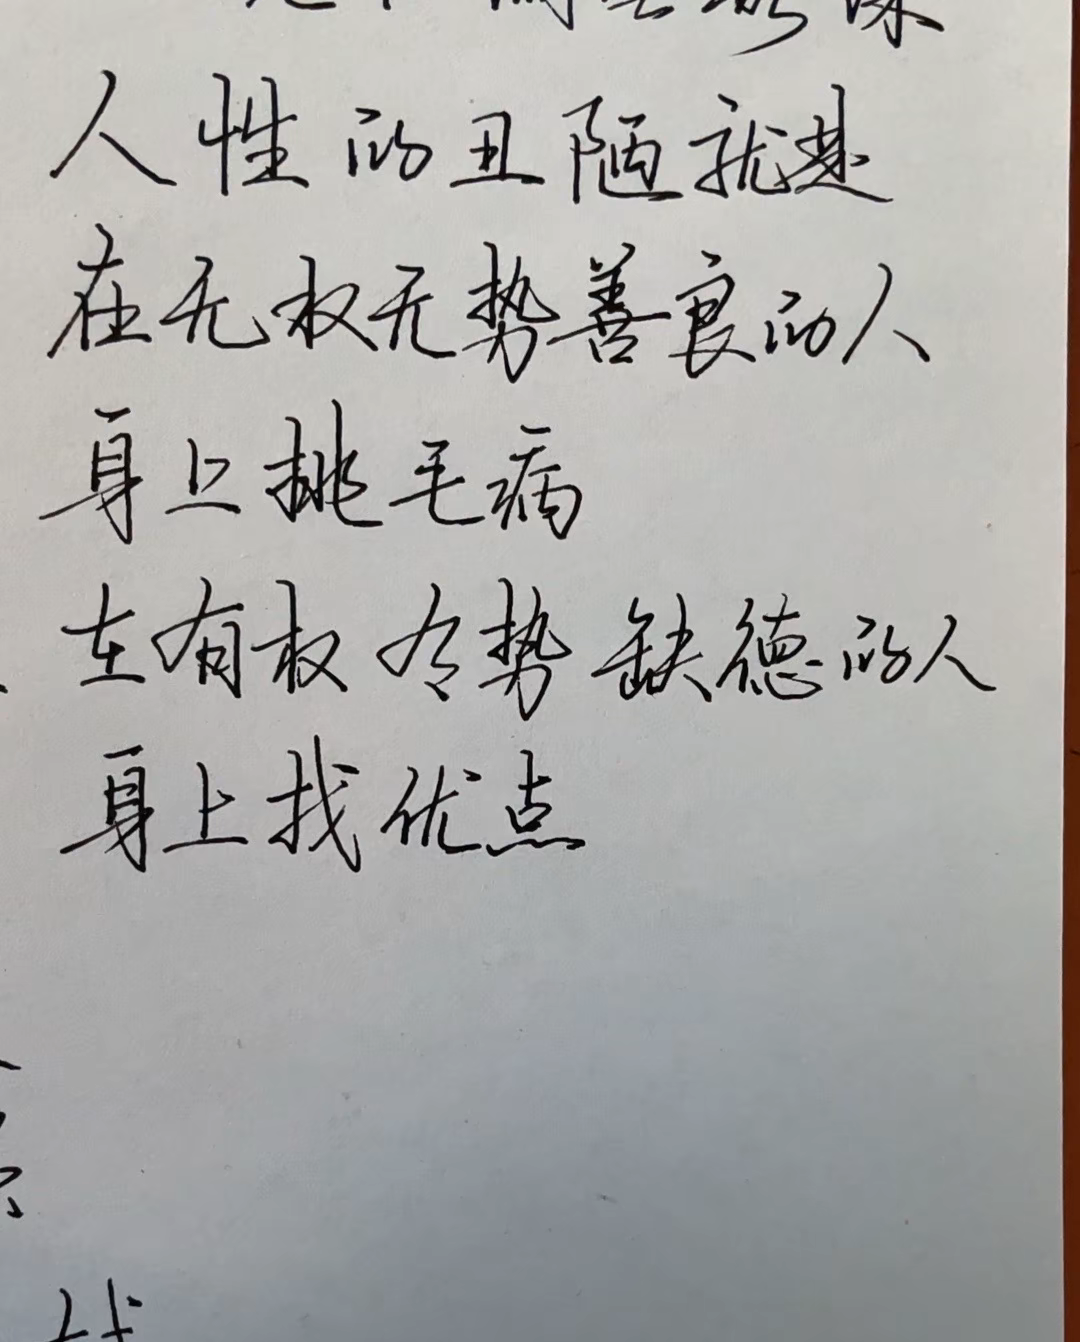 人性的丑陋就是
在无权无势善良的人
身上挑毛病
在有权有势缺德的人
身上找优点